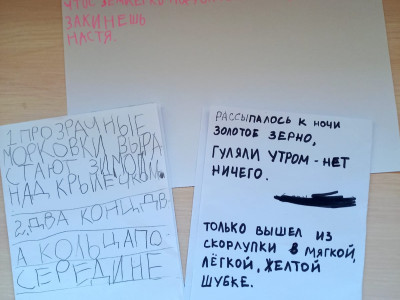 ЗАКИНЕШЬ
НАСТЯ.
1. ПРОЗРАЧНЫЕ
МОРКОВКИ ВЫРА
СТАЮТ ЗИМОЙ
НАД КРЫЛЕЧКОМ.
2. ДВА КОНЦА, ДВ
А КОЛЬЦА ПО
СЕРЕДИНЕ
РАССЫПАЛОСЬ К НОЧИ
ЗОЛОТОЕ ЗЕРНО,
ГУЛЯЛИ УТРОМ - НЕТ
НИЧЕГО.
ТОЛЬКО ВЫШЕЛ ИЗ
СКОРЛУПКИ В МЯГКОЙ,
ЛЁГКОЙ, ЖЕЛТОЙ
ШУБКЕ.